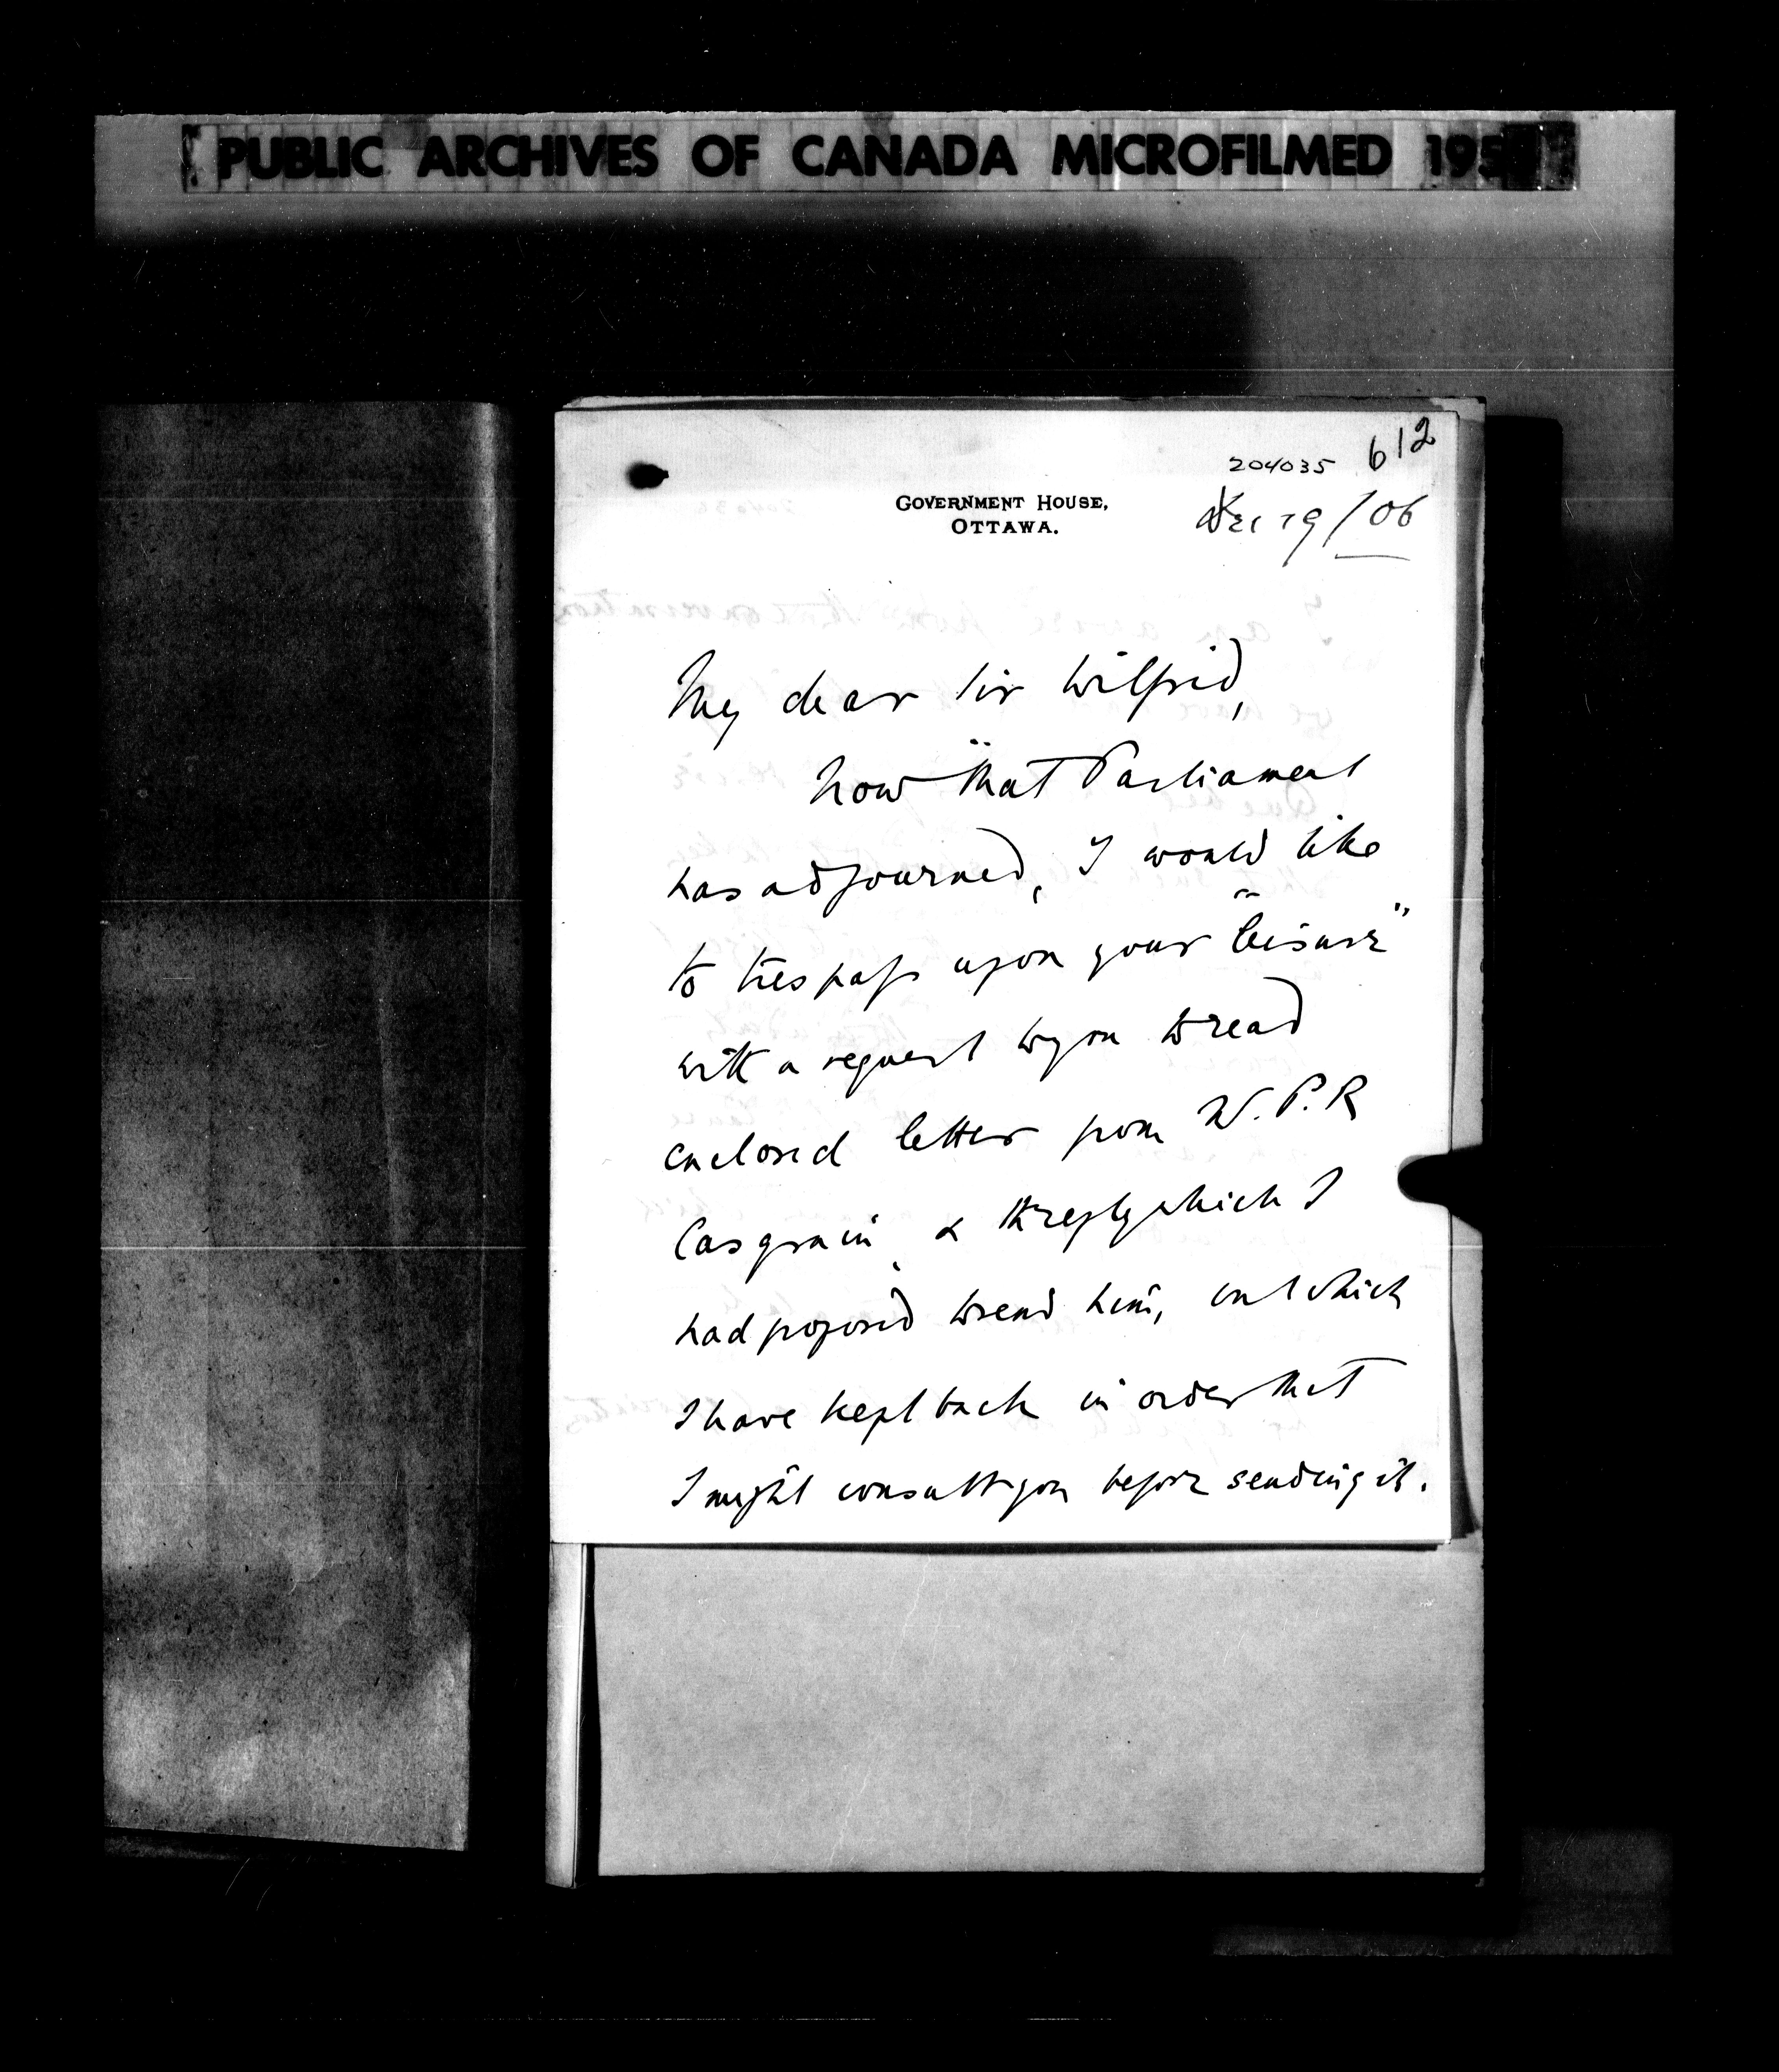 PUBLIC ARCHIVES OF CANADA MICROFILMED 195
612
204035
GOVERNMENT HOUSE,
OTTAWA.
Dec 19/06
My dear Sir Wilfrid,
Now that Parliament
has adjourned, I would like
to trespass upon your "leisure"
with a request to you to read
enclosed letter from W.P.R
Casgrain, & the reply which I
had proposed to send him, but which
I have kept back in order that
I might consult you before sending it.